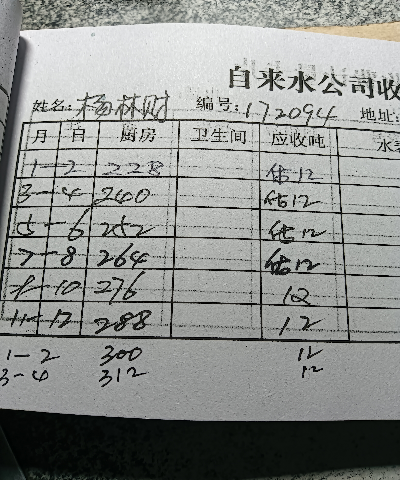 自来水公司收
姓名:杨林财 编号:172094 地址:
月 日 厨房 卫生间 应收吨 水
1-2 228 估12
3-4 240 估12
5-6 252 估12
7-8 264 估12
9-10 276 12
11-12 288 12
1-2 300 12
3-4 312 12